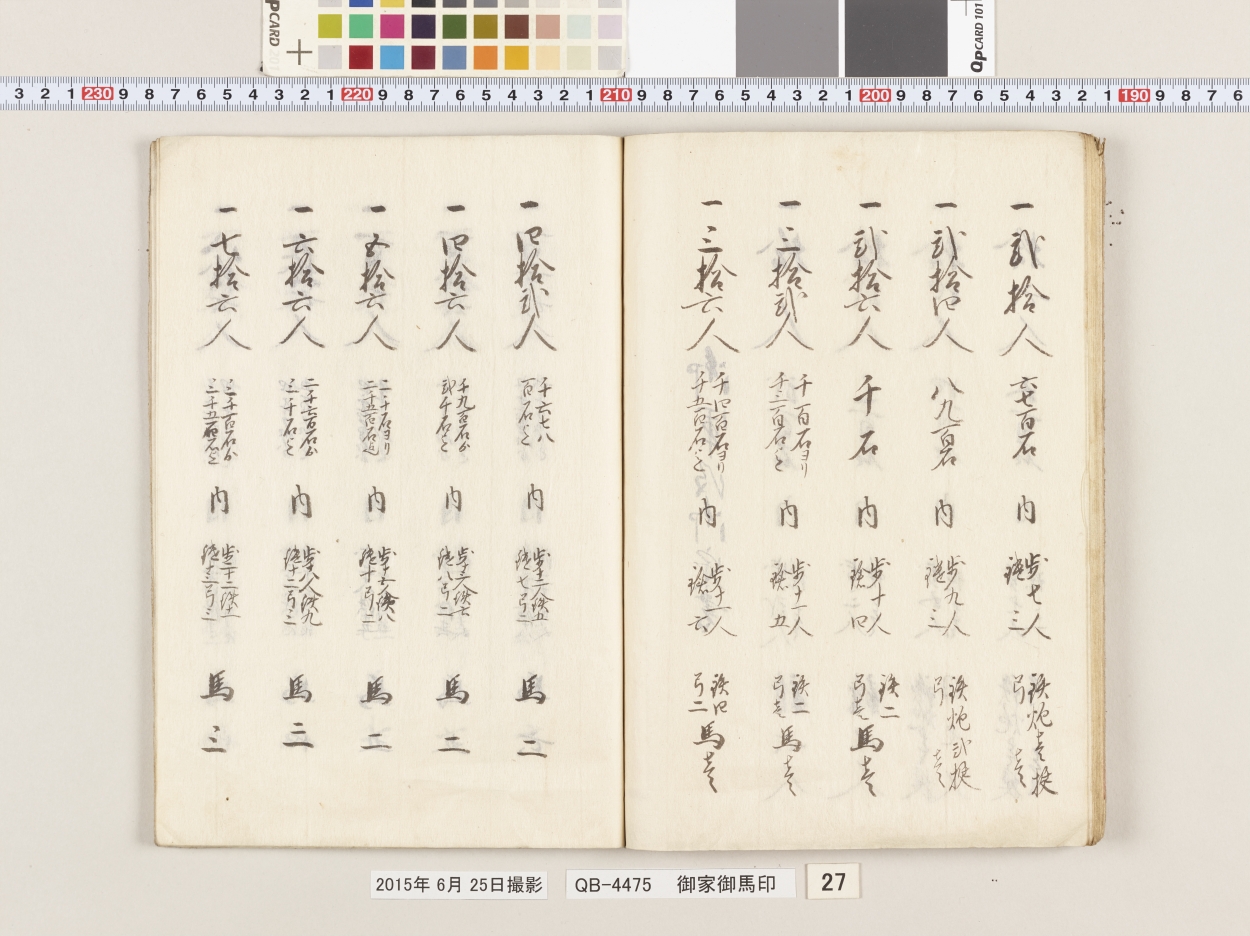 一 弐拾人 六七百石 内 歩七人 鑓三 鉄炮壱挺 弓壱
一 弐拾四人 八九百石 内 歩九人 鑓三 鉄炮弐挺 弓壱
一 弐拾六人 千石 内 歩十人 鑓四 鉄二 弓壱 馬壱
一 三拾弐人 千一百石ヨリ 千三百石迄 内 歩十一人 鑓五 鉄二 弓壱 馬壱
一 三拾六人 千四百石ヨリ 千五百石迄 内 歩十一人 鑓六 鉄四 弓二 馬壱
一 四拾弐人 千六七八 百石迄 内 鑓七 弓二 馬二
一 四拾六人 千九百石ゟ 弐千石迄 内 鑓八 弓二 馬二
一 五拾六人 二千石ヨリ 二千五百石迄 内 鑓十 弓二 馬二
一 六拾六人 二千六百石ゟ 三千石迄 内 歩十八人 鉄九 鑓十二 弓三 馬三
一 七拾六人 三千百石ゟ 三千五百石迄 内 弓三 馬三
2015年 6月 25日撮影
QB-4475 御家御馬印
27
QpCARD 101
3 2 1 230 9 8 7 6 5 4 3 2 1 220 9 8 7 6 5 4 3 2 1 210 9 8 7 6 5 4 3 2 1 200 9 8 7 6 5 4 3 2 1 190 9 8 7 6